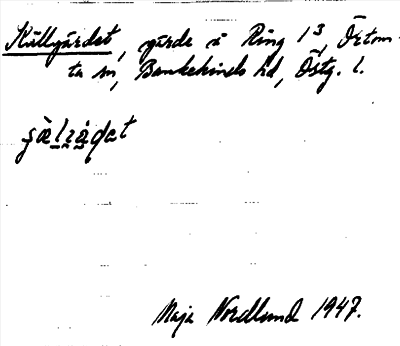 Källgärdet, gärde å Ring 1³, Örtom-
ta sn, Bankekinds hd, Östg. l.
Maja Nordlund 1947.